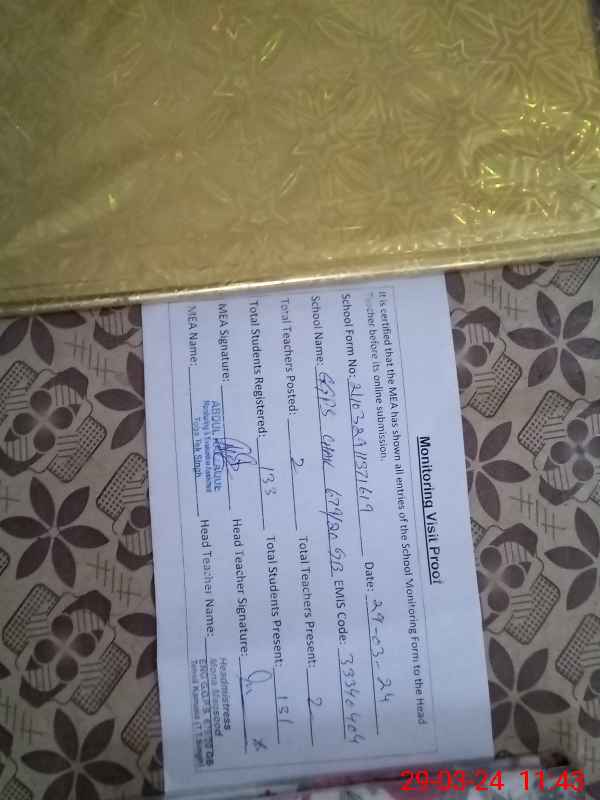 Monitoring Visit Proof
It is certified that the MEA has shown all entries of the School Monitoring Form to the Head
Teacher before its online submission.
School Form No: Date: 29-03-24
School Name: GGPS CHAK 679/20 GB EMIS Code: 33340404
Total Teachers Posted: 2 Total Teachers Present: 2
Total Students Registered: 133 Total Students Present: 131
MEA Signature: Head Teacher Signature:
MEA Name: Head Teacher Name:
ABDUL
Monitoring & Evaluation Assistant
Toba Tek Singh
Headmistress
Mona Maqsood
GGPS
29-03-24 11:43